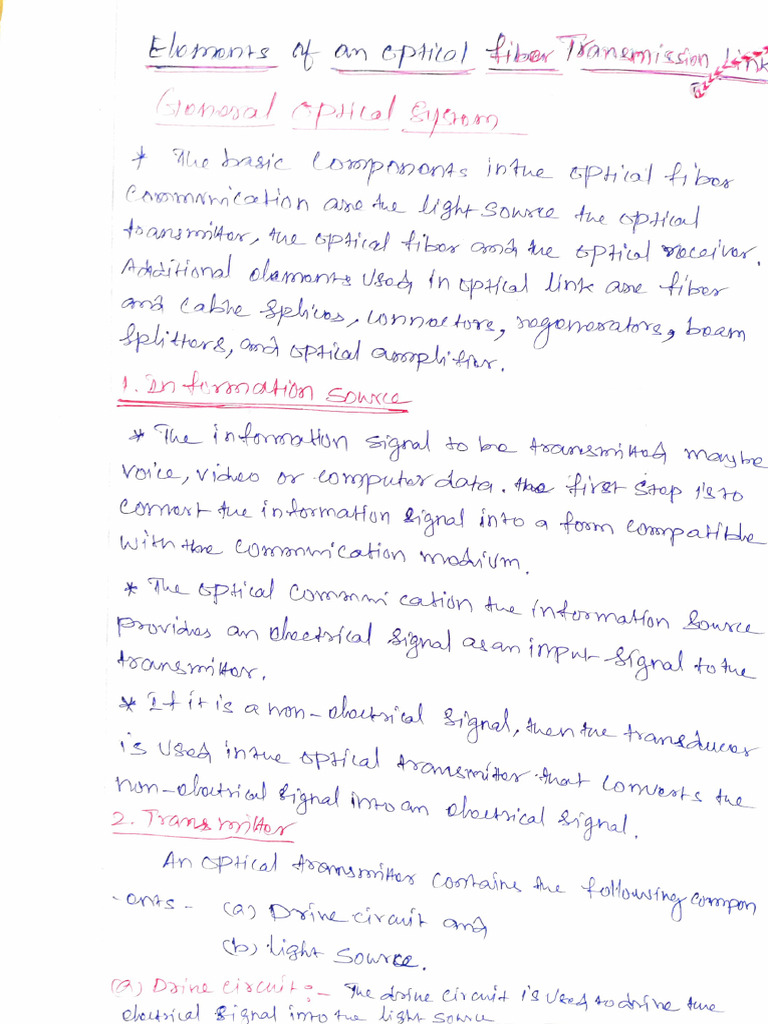 Elements of an optical fiber Transmission Link
General optical System
* The basic components in the optical fiber
communication are the light source the optical
transmitter, the optical fiber and the optical receiver.
Additional elements used in optical link are fiber
and cable splices, connectors, regenerators, beam
splitters, and optical amplifier.
1. Information source
* The information signal to be transmitted maybe
voice, video or computer data. the first step is to
convert the information signal into a form compatible
with the communication medium.
* The optical communication the information source
provides an electrical signal as an input signal to the
transmitter.
* If it is a non-electrical signal, then the transducer
is used in the optical transmitter that converts the
non-electrical signal into an electrical signal.
2. Transmitter
An optical transmitter contains the following compon
-ents - (a) Drive circuit and
(b) light source.
(a) Drive circuit:- The drive circuit is used to drive the
electrical signal into the light source